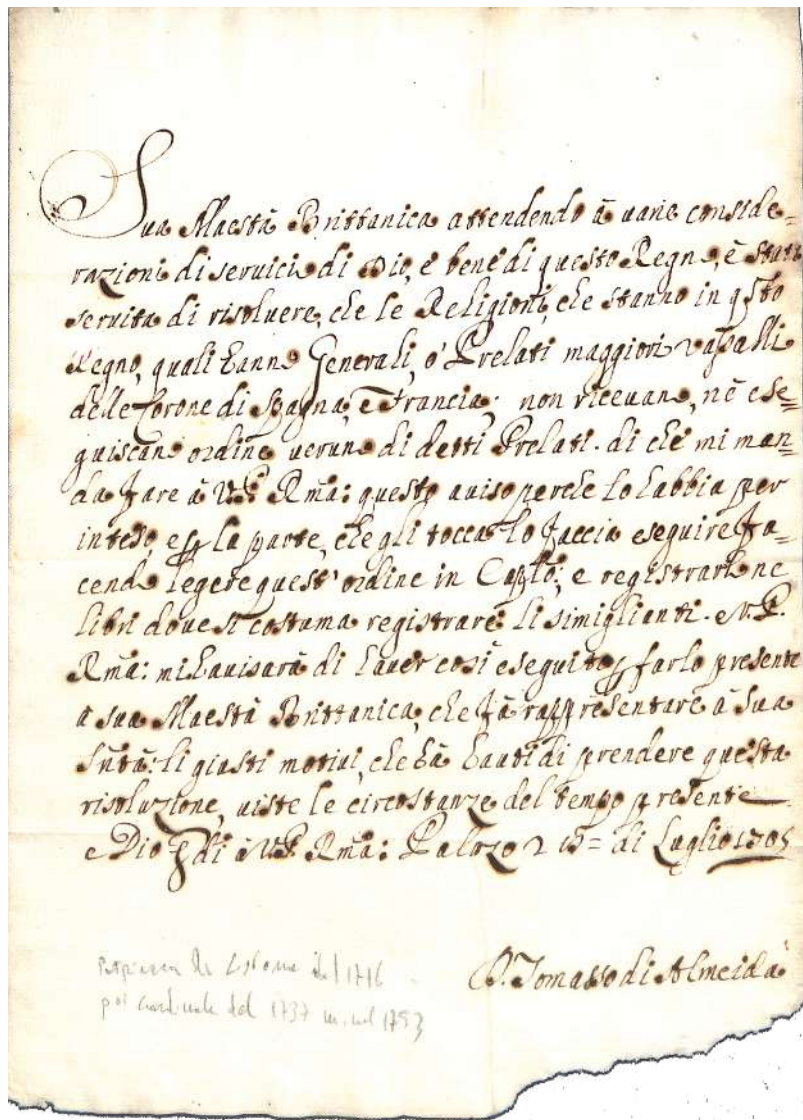 Sua Maestà Brittanica attendendo à varie conside=
razioni di servicio di Dio, e bene di questo Regno, è stata
servita di risolvere, che le Religioni, che stanno in qsto
Regno, quali hanno Generali, o' Prelati maggiori vassalli
delle Corone di Spagna, e Francia; non ricevano, nè ese=
guiscano ordine veruno di detti Prelati. di che mi man=
da fare à V.P. Rma: questo aviso perche lo habbia per
inteso, e p la parte, che gli tocca lo faccia eseguire fa=
cendo legere quest' ordine in Caplo; e registrarlo ne
libri dove si costuma registrare li simiglianti. e V.P.
Rma: mi havisarà di haver così eseguito p farlo presente
à sua Maestà Brittanica, che fà rappresentare à Sua
Sntà: li giusti motivi, che hà havuti di prendere questa
risoluzione, viste le circostanze del tempo presente
e Dio gdi à V.P. Rma: Palazo 2 di Luglio 1705
D. Tomasso di Almeida
del 1716
poi cardinale dal 1737 m. nel 1753